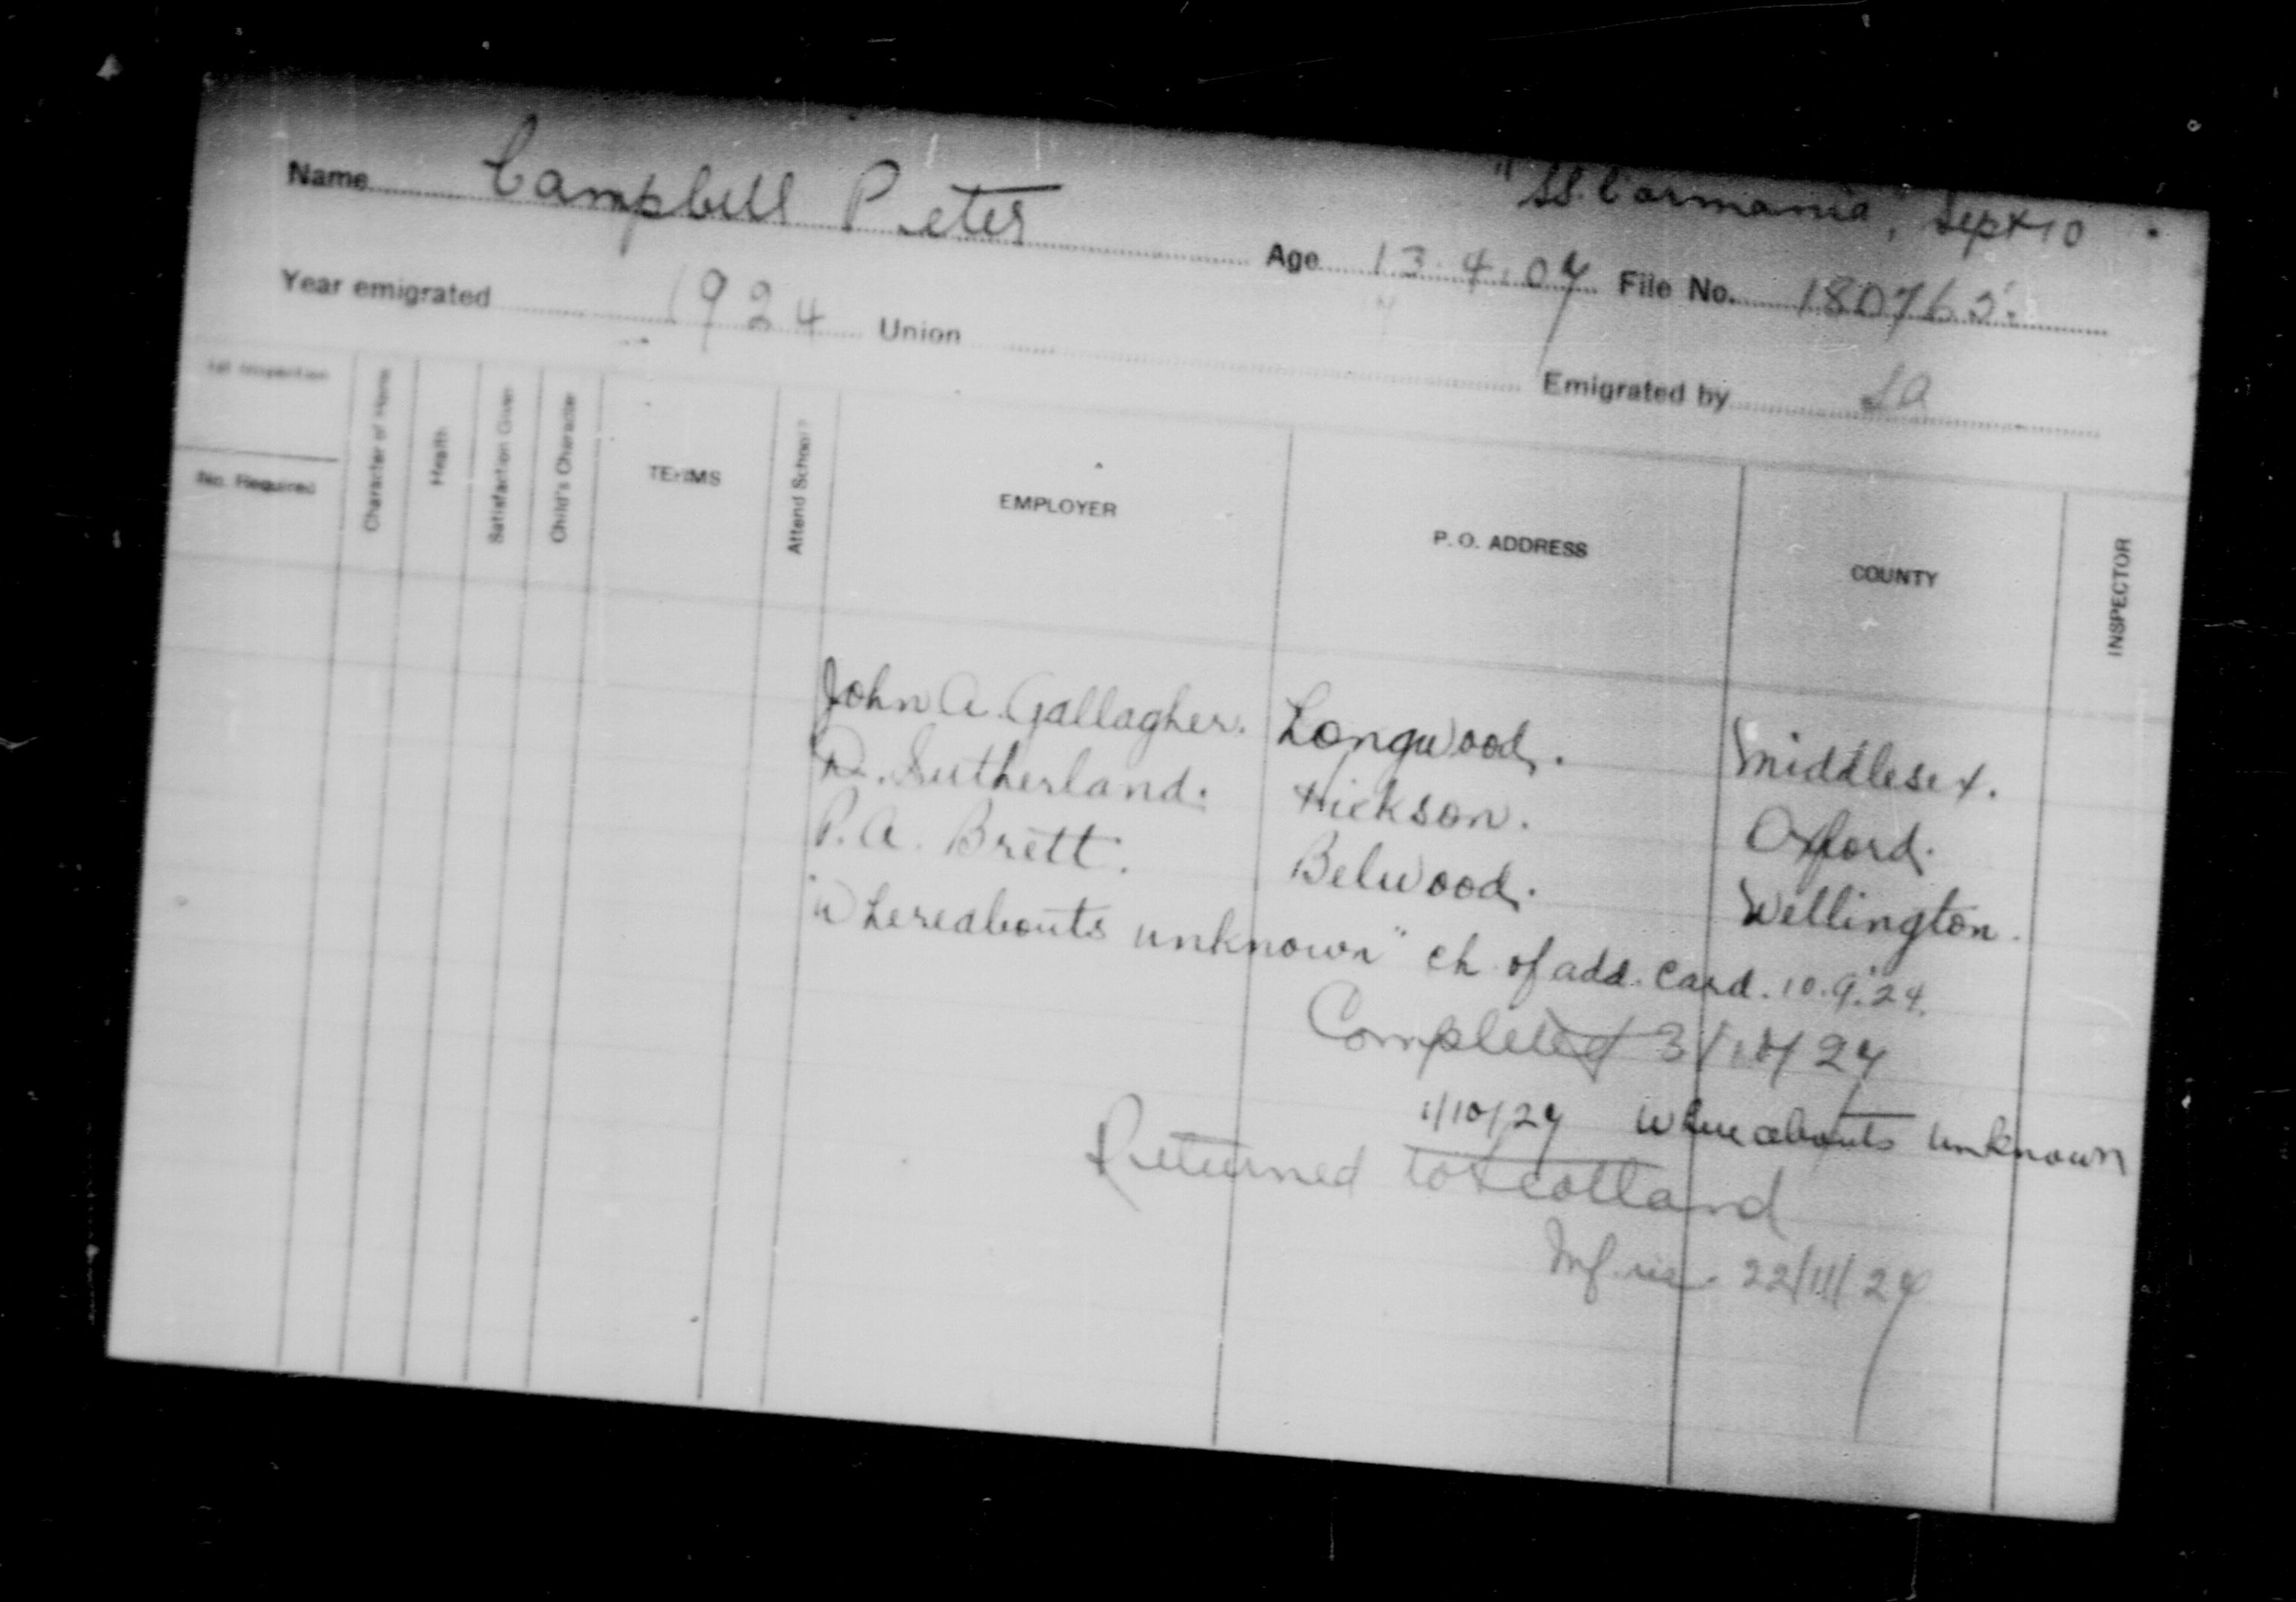 "SS. Carmania", Sept 10
Name Campbell Peter Age 13.4.07 File No. 180765.
Year emigrated 1924 Union Emigrated by SA
1st Inspection
No. Required Character of Home Health Satisfaction Given Child's Character TERMS Attend School? EMPLOYER P. O. ADDRESS COUNTY INSPECTOR
John A. Gallagher. Longwood. Middlesex.
D. Sutherland. Hickson. Oxford.
P. A. Brett. Belwood. Wellington.
"Whereabouts unknown" ch. of add. card. 10.9.24.
Completed 3/10/27
1/10/27 Whereabouts unknown
Returned to Scotland
22/11/27